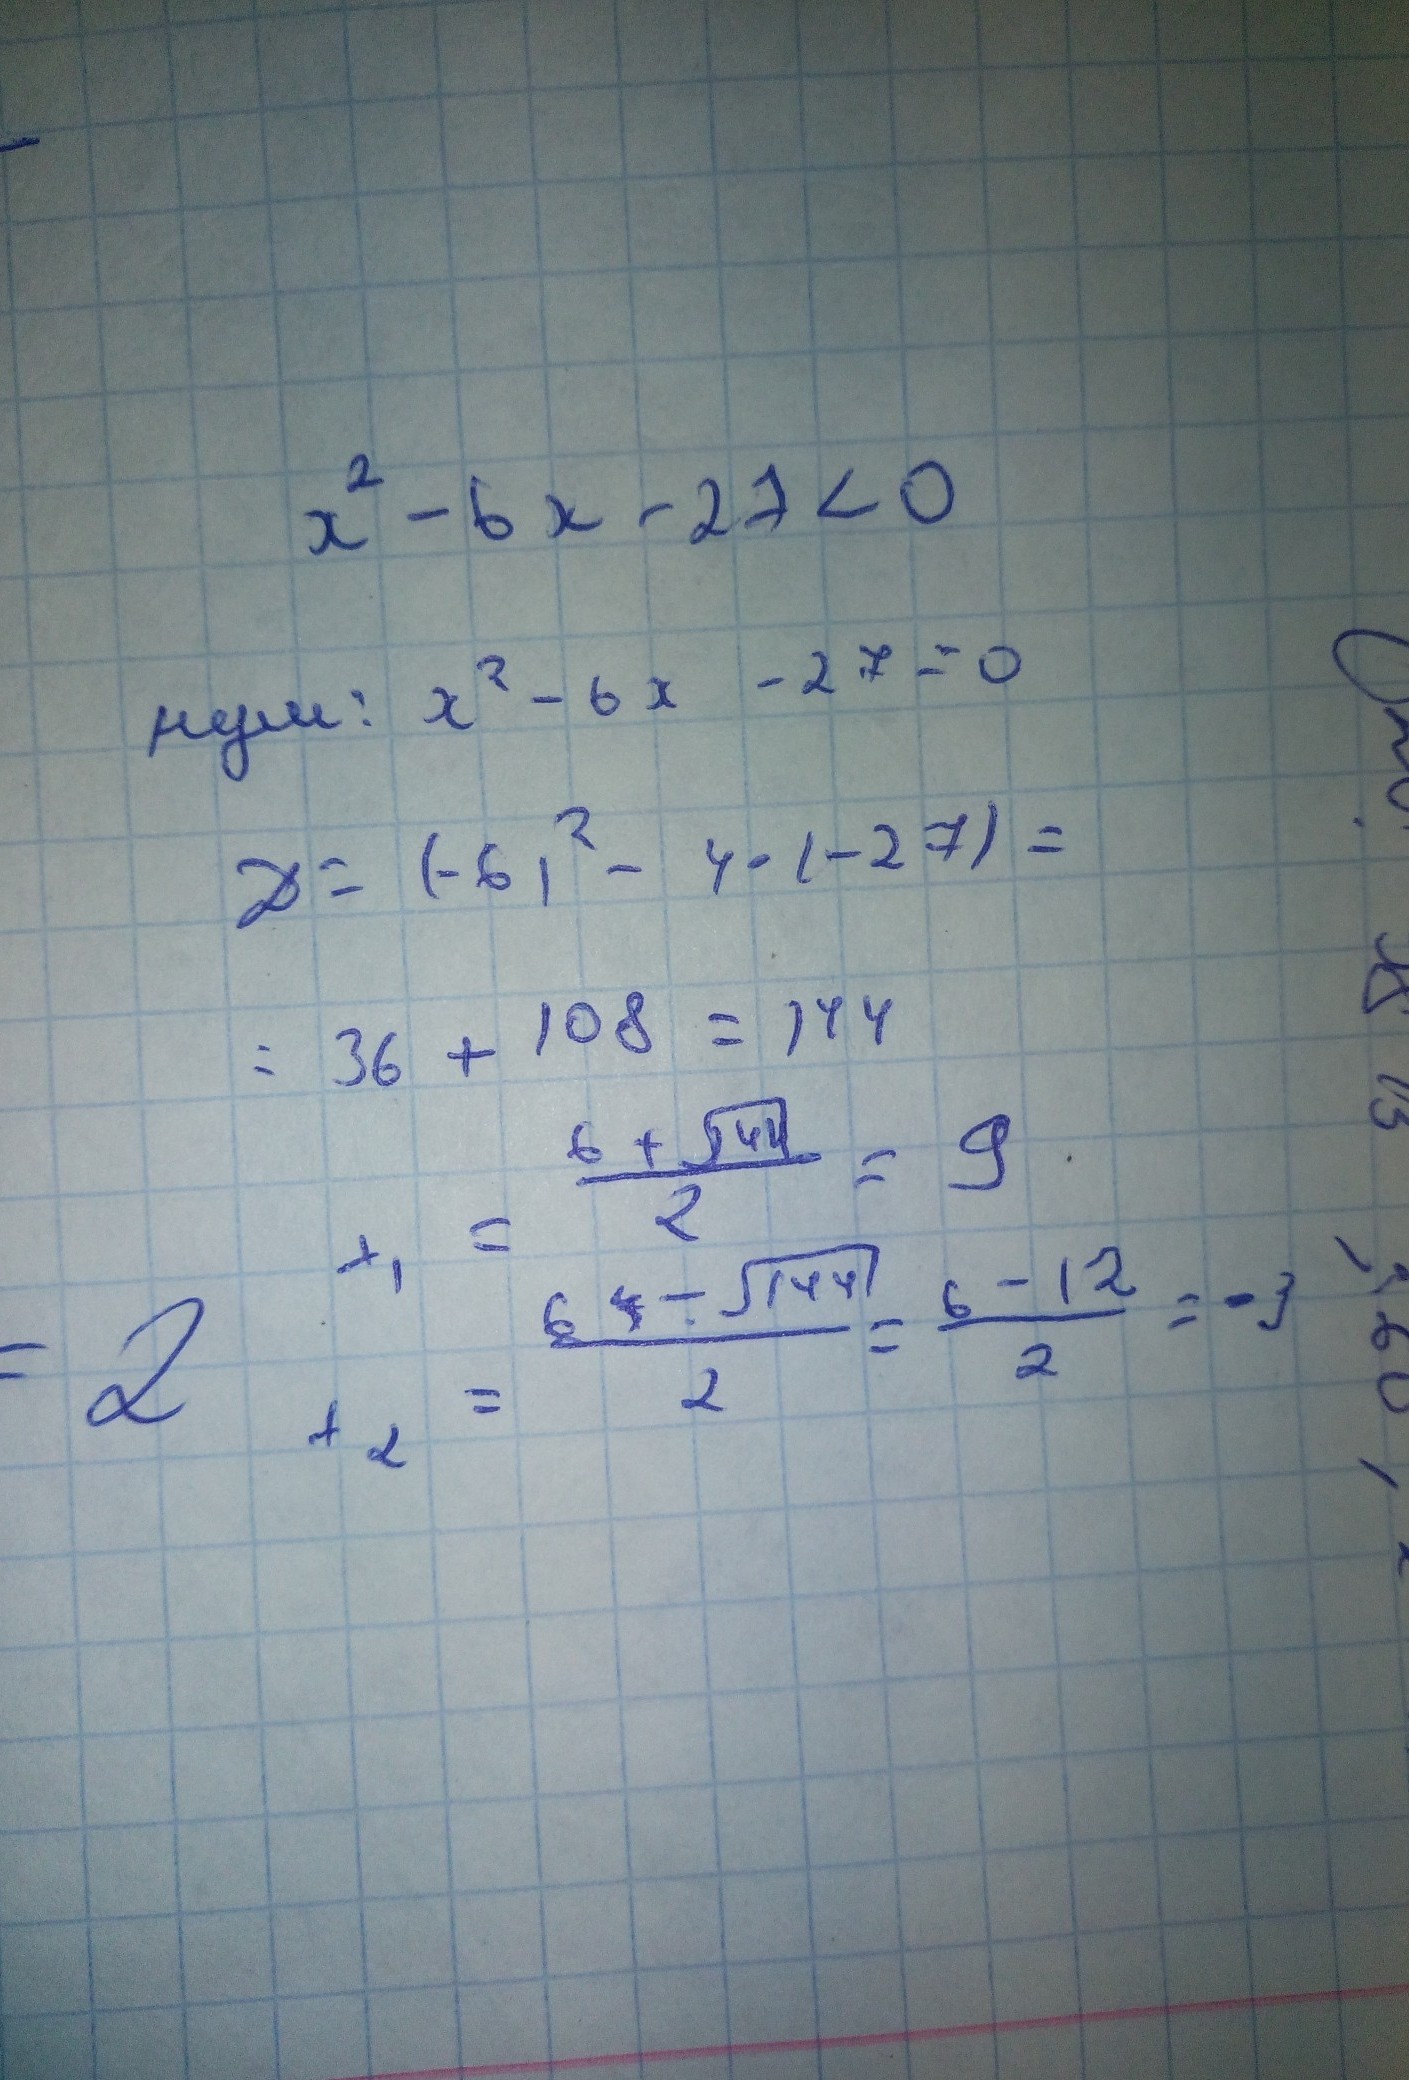 x² - 6x - 27 < 0
нули: x² - 6x - 27 = 0
D = (-6)² - 4·(-27) =
= 36 + 108 = 144
x₁ = (6 + √144)/2 = 9
x₂ = (6 - √144)/2 = (6 - 12)/2 = -3
= 2